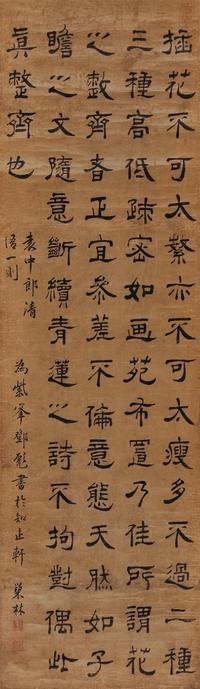 插花不可太繁亦不可太瘦多不過二種
三種高低疎密如画苑布置乃佳所謂花
之整齊者正宜參差不倫意態天然如子
瞻之文隨意斷續青蓮之詩不拘對偶此
眞整齊也
袁中郎清
語一則
為紫峯 書於知止軒 巢林